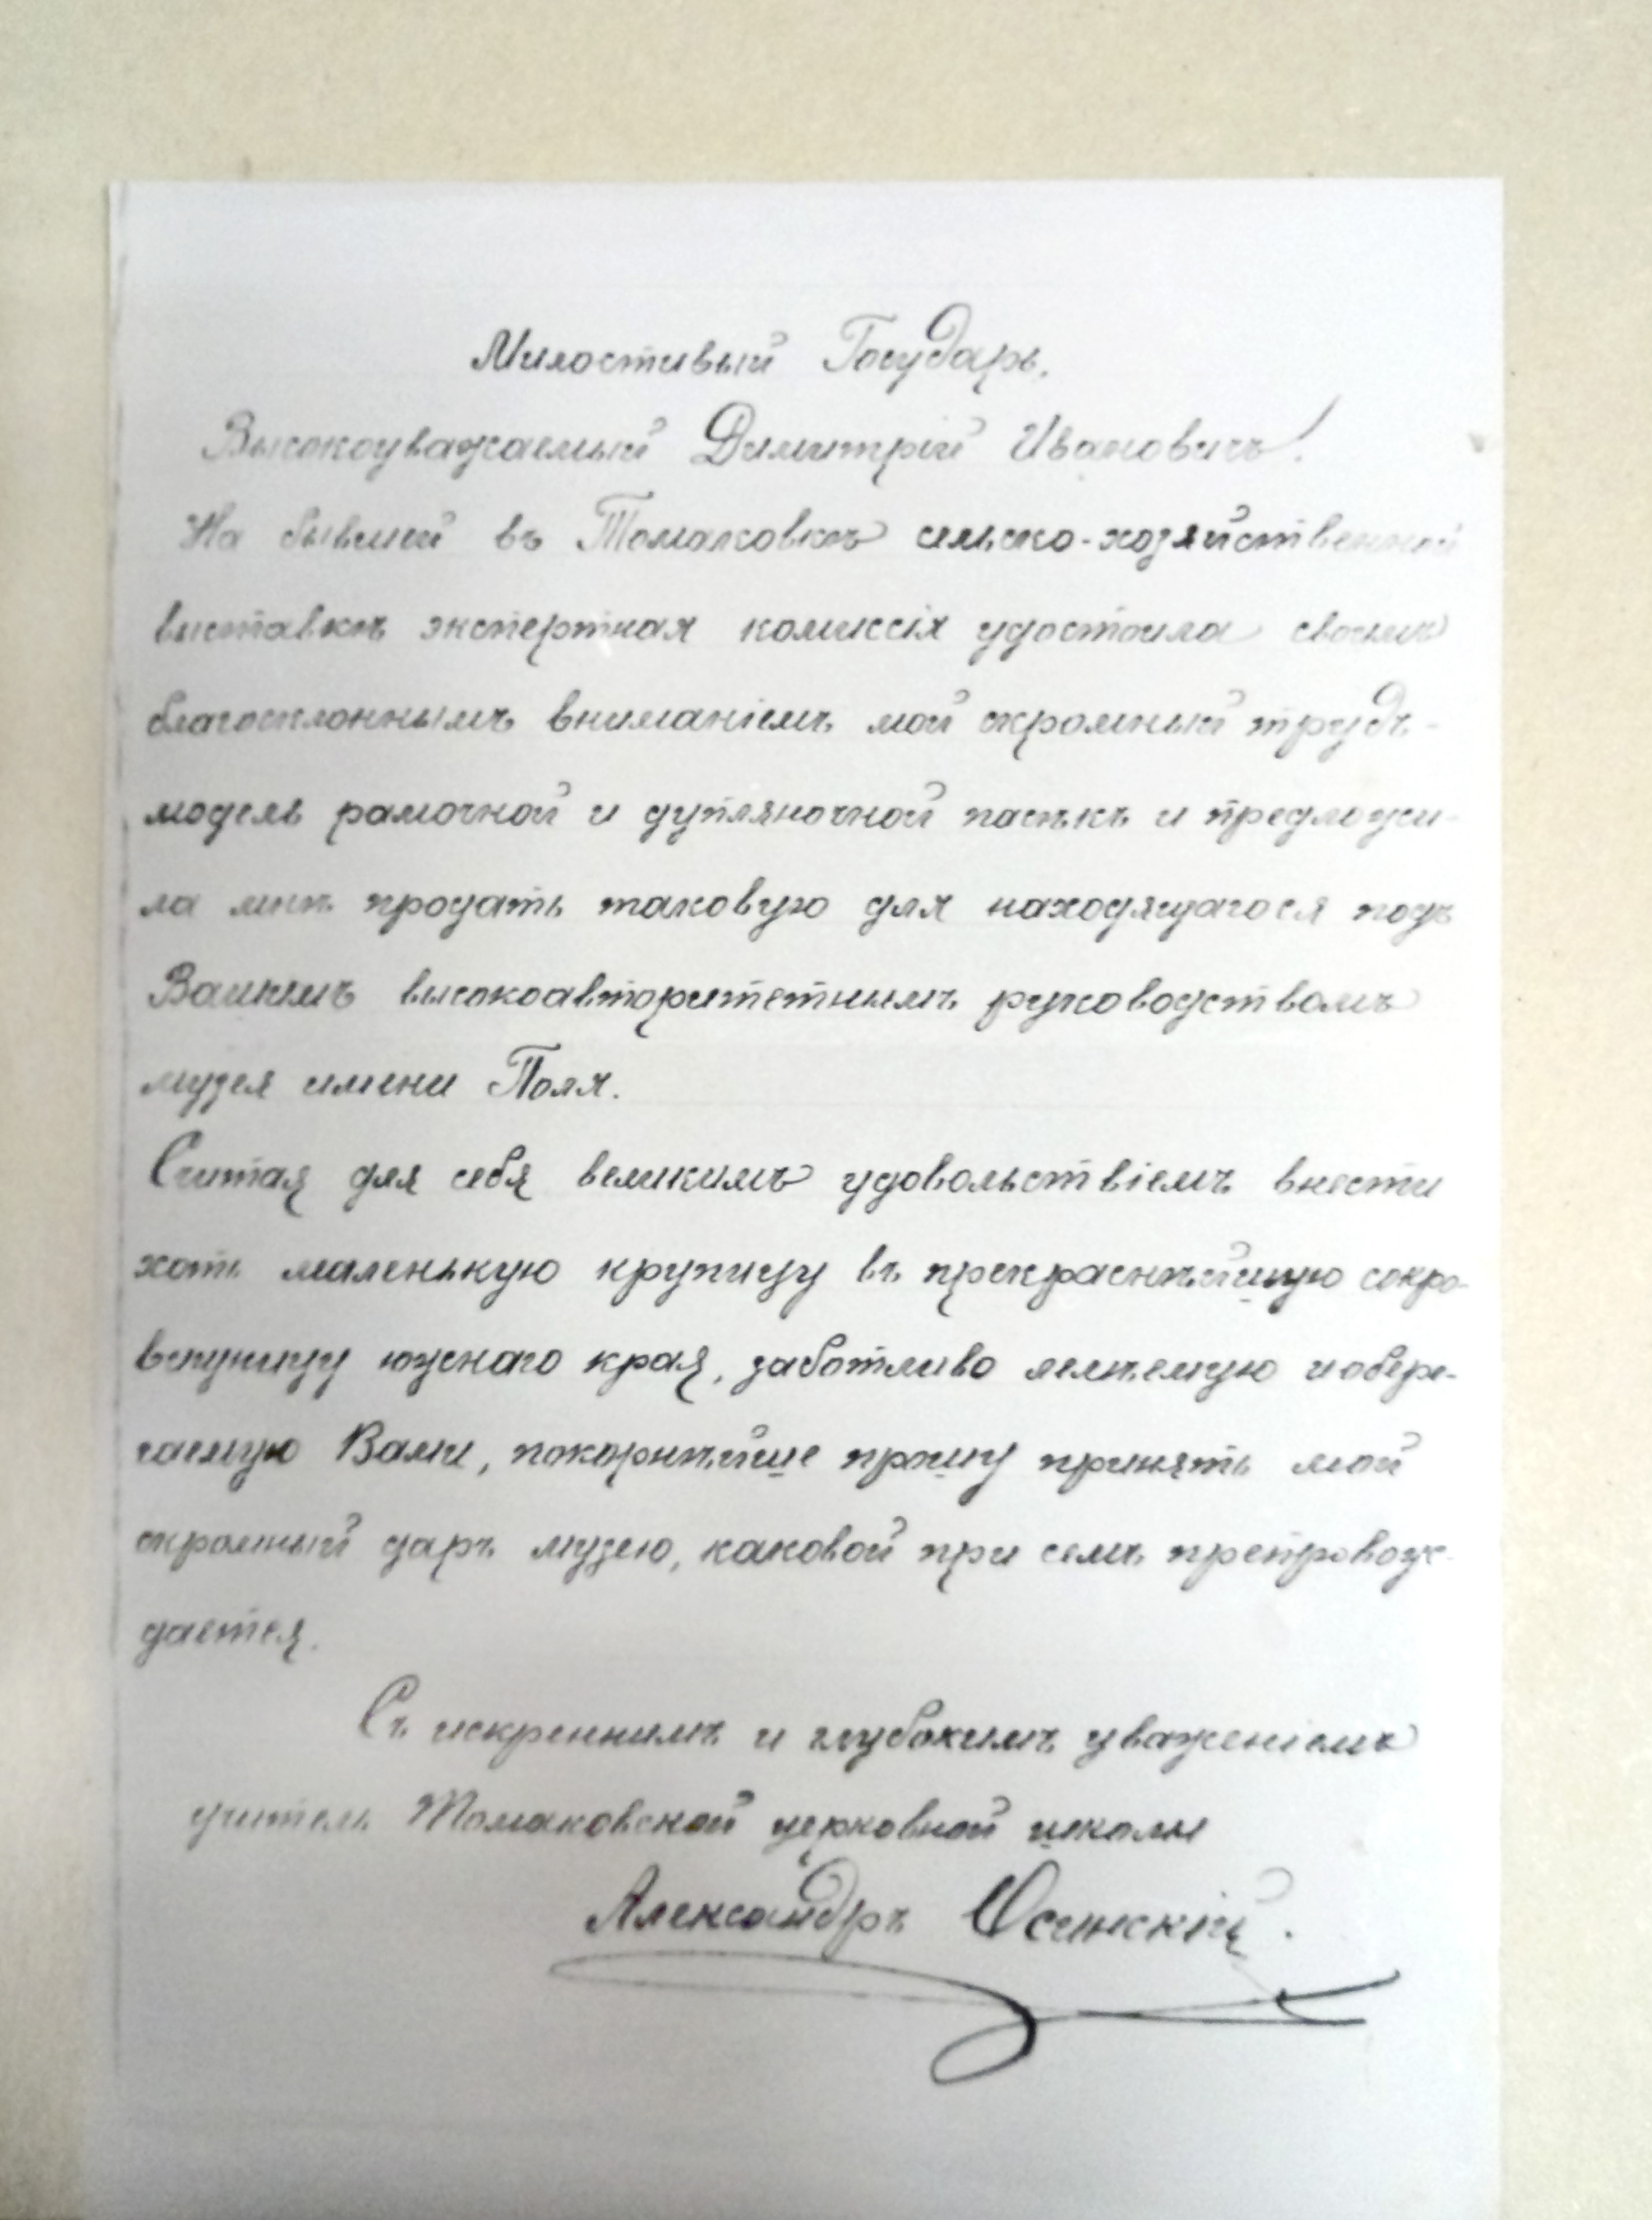 Милостивый Государь,
Высокоуважаемый Димитрій Ивановичъ!
На бывшей въ Томаковкѣ сельско-хозяйственной
выставкѣ экспертная комиссія удостоила своимъ
благосклоннымъ вниманіемъ мой скромный трудъ-
модель рамочной и дупляночной пасѣкъ и предложи-
ла мнѣ продать таковую для находящагося подъ
Вашимъ высокоавторитетнымъ руководствомъ
музея имени Поля.
Считая для себя великимъ удовольствіемъ внести
хоть маленькую крупицу въ прекраснѣйшую сокро-
вищницу южнаго края, заботливо лелѣемую и обере-
гаемую Вами, покорнѣйше прошу принять мой
скромный даръ музею, каковой при семъ препровож-
дается.
Съ искреннимъ и глубокимъ уваженіемъ
учитель Томаковской церковной школы
Александръ Осинскій.